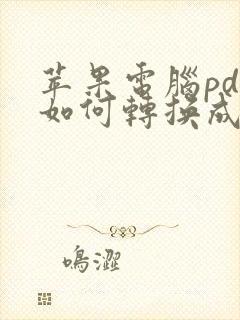 苹果電腦pd
如何轉換成
鳴澀